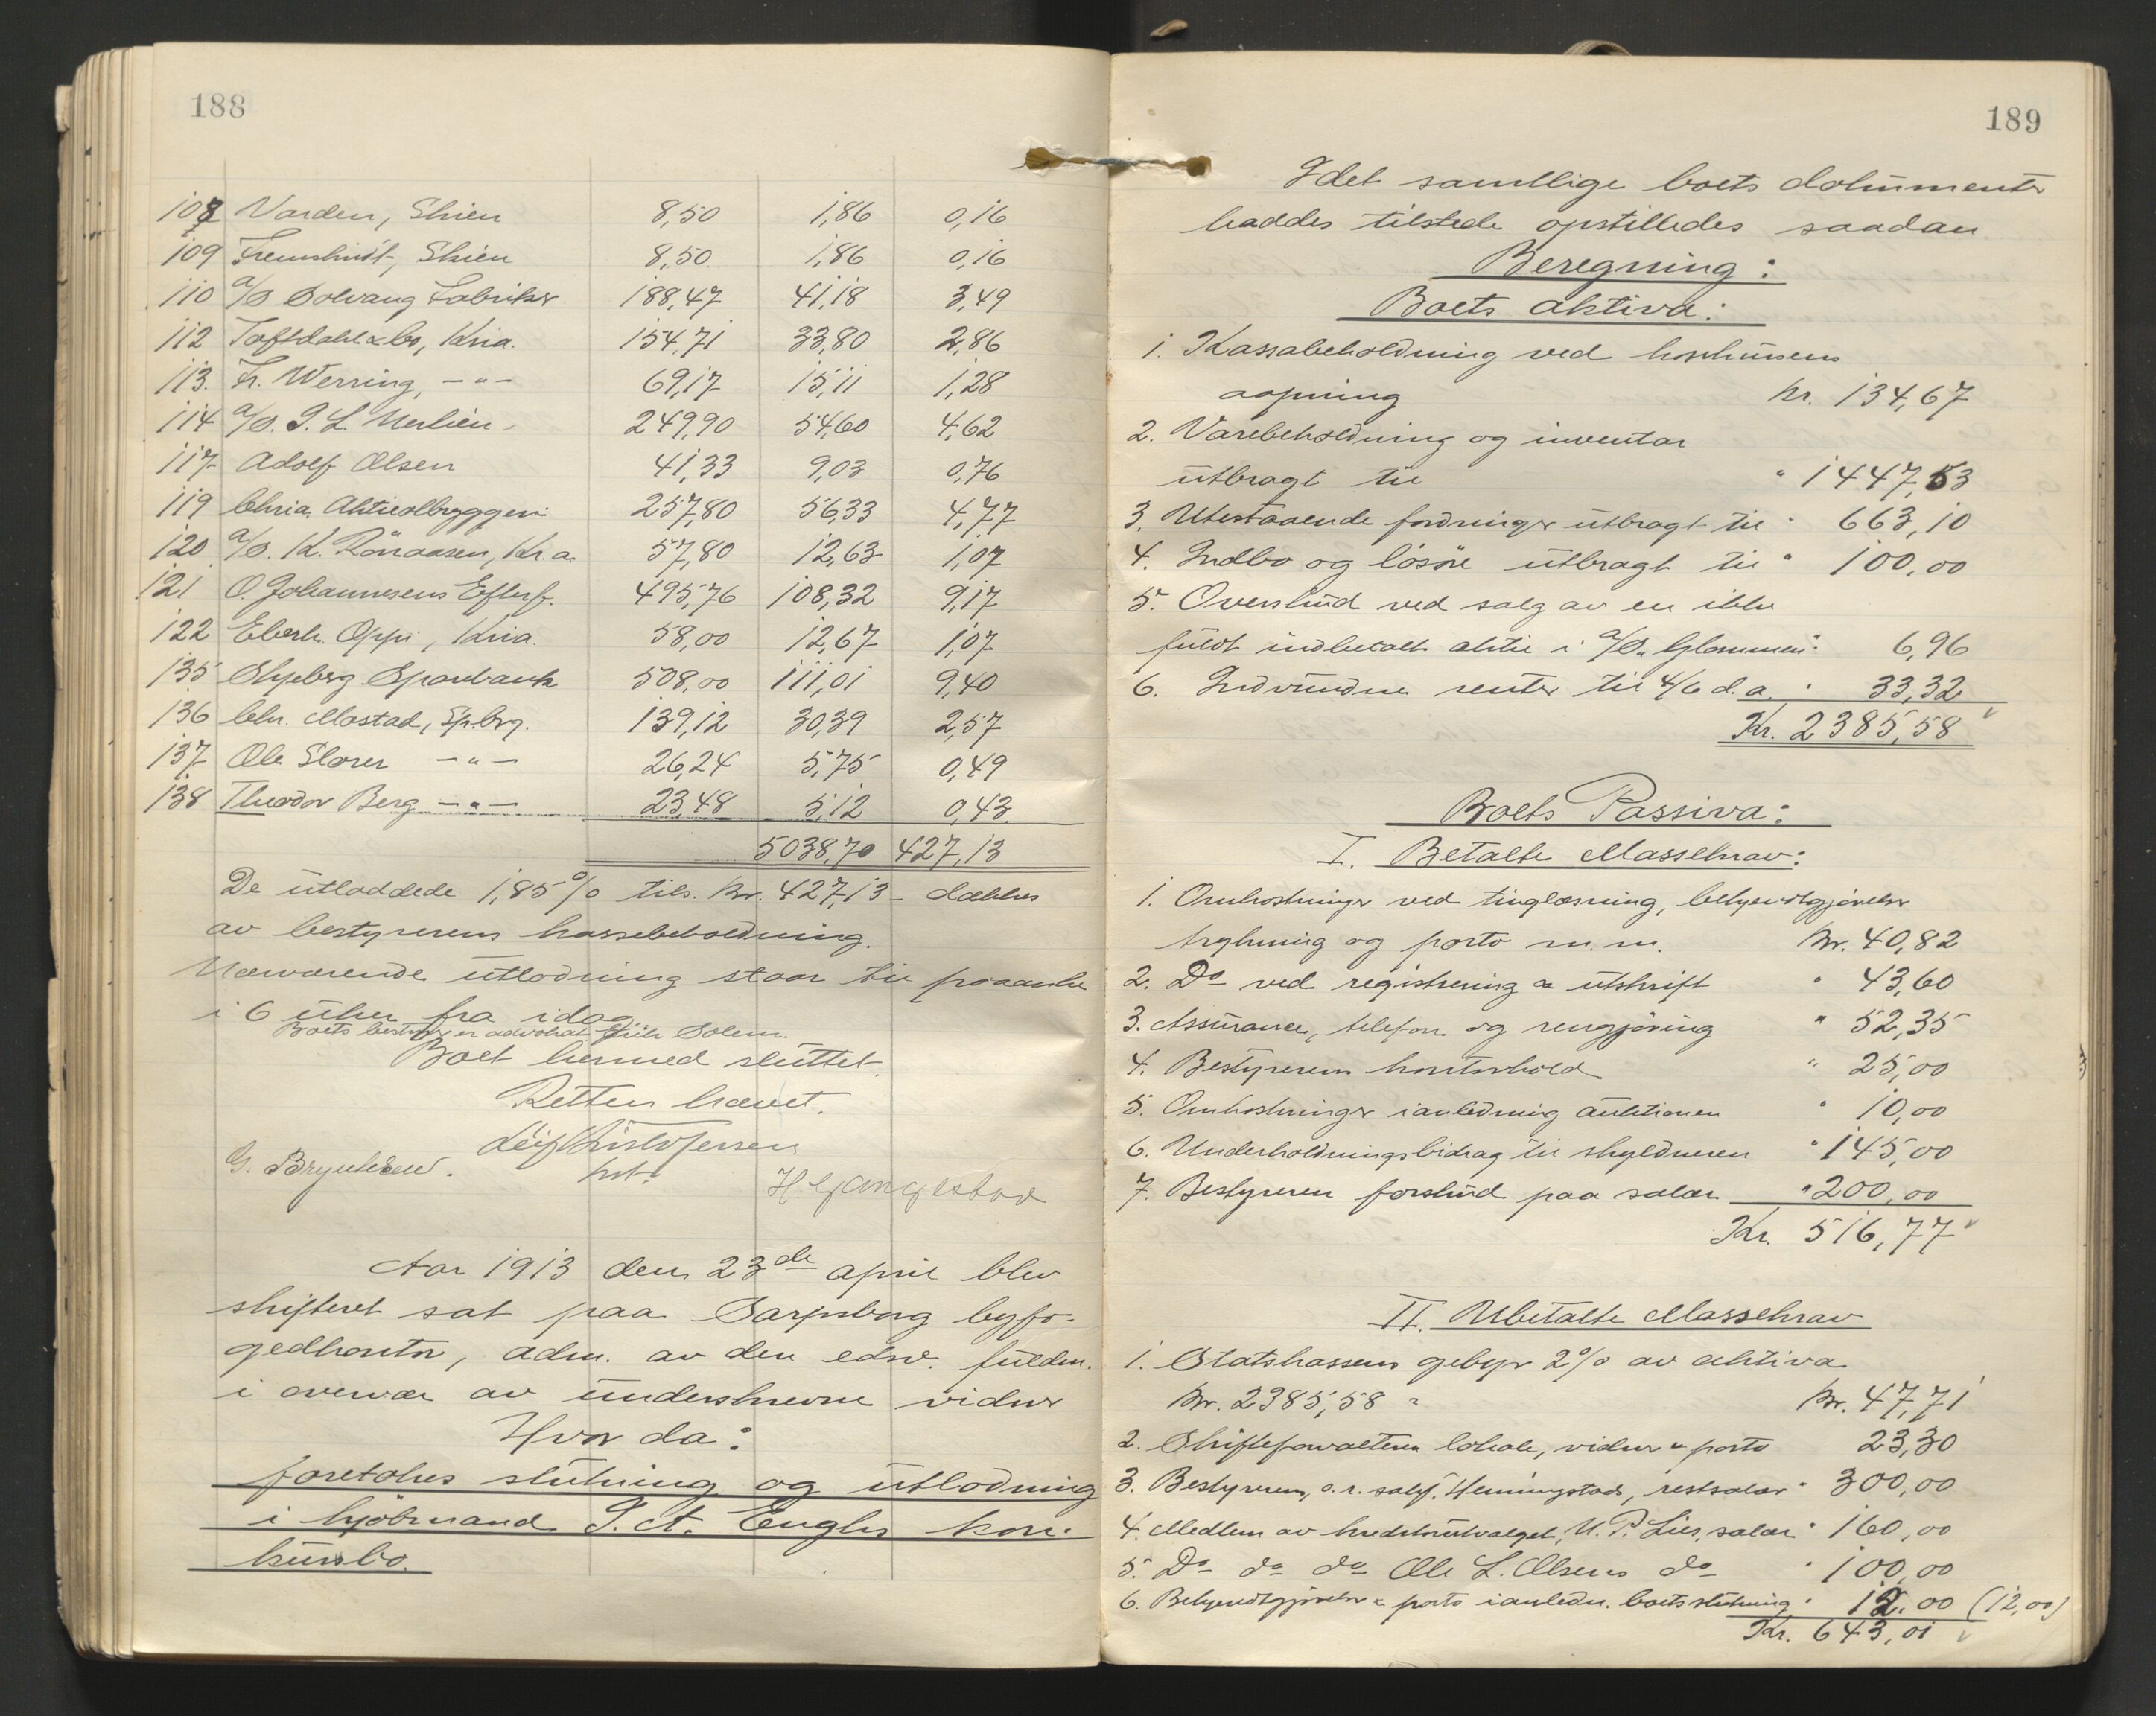 188
108 Varden, Skien 8,50 1,86 0,16
109 Fremskridt, Skien 8,50 1,86 0,16
110 a/s Solvang Fabriker 188,47 41,18 3,49
112 Toftdahl & Co, Kria. 154,71 33,80 2,86
113. Fr. Werring, —"— 69,17 15,11 1,28
114 a/s. P. L. 249,90 54,60 4,62
117 Adolf Olsen 41,33 9,03 0,76
119 Chria. Aktieølbryggeri 257,80 56,33 4,77
120 a/s. K. Rönaasen, Kr.a. 57,80 12,63 1,07
121 O. Johannesens Efterf. 495,76 108,32 9,17
122 Eberh. Oppi, Kria. 58,00 12,67 1,07
135 Skjeberg Sparebank 508,00 111,01 9,40
136 Chr. Mostad, Sp.brg. 139,12 30,39 2,57
137 Ole Slorer —"— 26,24 5,75 0,49
138 Theodor Berg —"— 23,48 5,12 0,43.
5038,70 427,13
De utloddede 1,85% tils. kr. 427,13 – dækkes
av bestyrerens kassebeholdning.
Nærværende utlodning staar til paaanke
i 6 uker fra idag.
Boets bestyrer er advokat Solem.
Boet hermed sluttet.
Retten hævet.
Leif Kristofersen
G. Bryntesen. kst. H Gjangestad
Aar 1913 den 23de april blev
skifteret sat paa Sarpsborg byfo-
gedkontor, adm. av den edsv. fuldm.
i overvær av underskrevne vidner
Hvor da:
foretokes slutning og utlodning
i kjöbmand P. A. Enghs kon-
kursbo.
189
Idet samtlige boets dokumenter
haddes tilstede opstilledes saadan
Beregning:
Boets aktiva:
1. Kassabeholdning ved konkursens
aapning kr. 134,67
2. Varebeholdning og inventar
utbragt til " 1447,53
3. Utestaaende fordringer utbragt til " 663,10
4. Indbo og lösöre utbragt til " 100,00
5. Overskud ved salg av en ikke
fuldt indbetalt aktie i a/s. Glommen " 6,96
6. Indvundne renter til 4/6 d.a. " 33,32
Kr. 2385,58
Boets Passiva:
I. Betalte Massekrav:
1. Omkostninger ved tinglæsning, bekjendtgjörelser
trykning og porto m.m. kr. 40,82
2. Do ved registrering & utskrift " 43,60
3. Assurance, telefon og rengjöring " 52,35
4. Bestyrerens kontorhold " 25,00
5. Omkostninger ianledning auktionen " 10,00
6. Underholdningsbidrag til skyldneren " 145,00
7. Bestyreren forskud paa salær " 200,00
Kr. 516,77
II. Ubetalte Massekrav
1. Statskassens gebyr 2% av aktiva
kr. 2385,58 = kr. 47,71
2. Skifteforvalteren lokale, vidner & porto 23,30
3. Bestyreren, o.r. sakf. Henningstad, restsalær " 300,00
4. Medlem av kreditorutvalget, N. P. Lies, salær " 160,00
5. Do do do Ole L. Olsens do " 100,00
6. Bekjendtgjörelse & porto ianledn. boets slutning " 12,00 (12,00)
Kr. 643,01